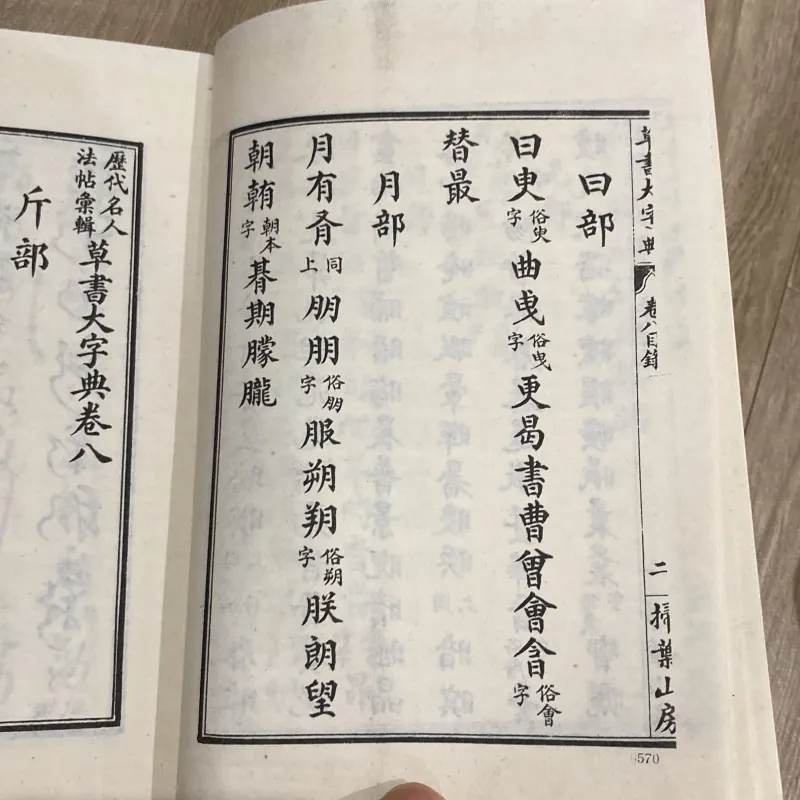 草書大字典
卷八目錄
二
掃葉山房
曰部
曰㬰俗臾字曲曵俗曳字更曷書曹曾會㑹俗會字
替最
月部
月有同上朋朋俗朋字服朔俗朔字朕朗望
朝朝本字朞期朦朧
570
歷代名人法帖彙輯草書大字典卷八
斤部